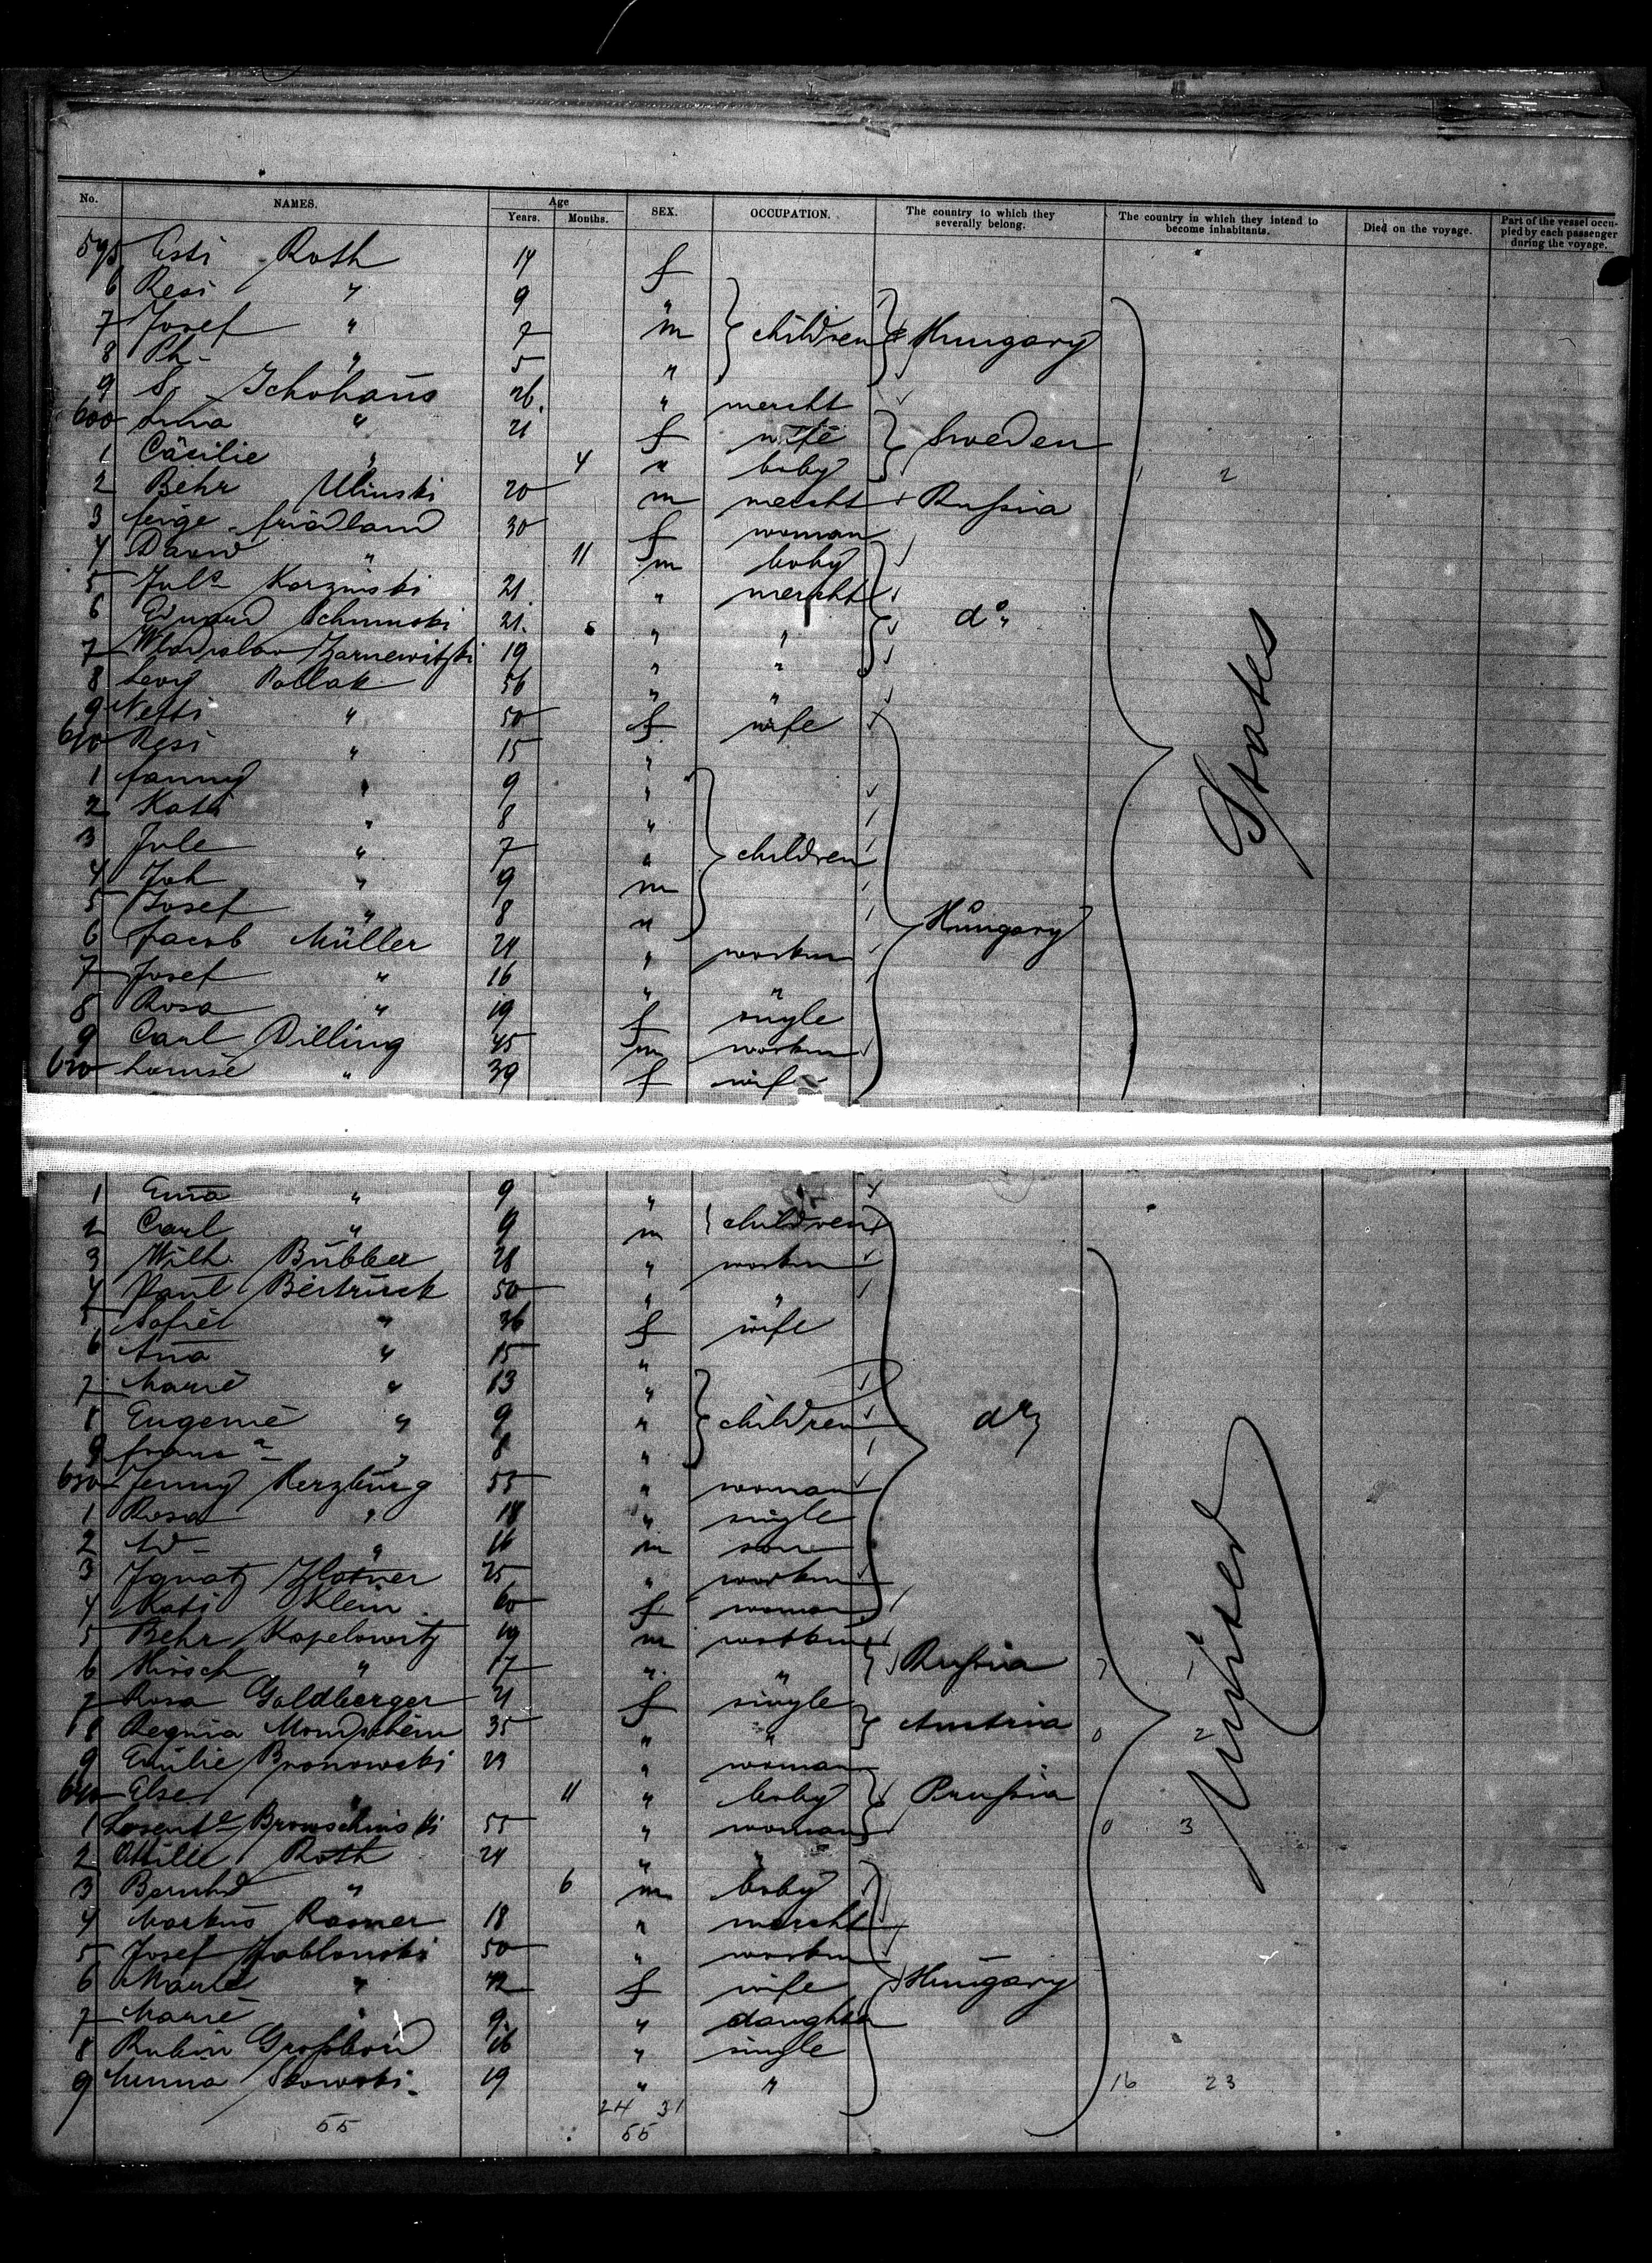 No. NAMES. Age Years. Months. SEX. OCCUPATION. The country to which they severally belong. The country in which they intend to become inhabitants. Died on the voyage. Part of the vessel occupied by each passenger during the voyage.
595 Esti Roth 14 f
6 Resi " 9 "
7 Josef " 7 m children Hungary
8 Ph- " 5 "
9 S. Schohaus 26 " mercht
600 Lina " 21 f wife Sweden
1 Cäcilie " 4 " baby 1 2
2 Behr Ulinski 20 m mercht Russia
3 feige friedland 30 f woman
4 David " 11 m baby
5 Jul° Korzinski 21 " mercht
6 Eduard Schuminski 21 " " d°
7 Wladislaw Zarnewitzki 19 " "
8 Levy Pollak 56 " "
9 Netti " 50 f wife
610 Resi " 15 "
1 fanny " 9 "
2 Kati " 8 "
3 Jule " 7 " children
4 Joh " 9 m
5 Josef " 8 " Hungary
6 Jacob Müller 24 " workm
7 Josef " 16 " "
8 Rosa " 19 f single
9 Carl Dilling 45 m workm
620 Louise " 39 f wife
States
1 Em̄a " 9 "
2 Carl " 9 m children
3 Wilh. Bübber 28 " workm
4 Paul Beitrück 50 " "
5 Sofie " 36 f wife
6 An̄a " 15 "
7 Marie " 13 "
8 Eugenie " 9 " children d°
9 franc° " 8 "
630 Jenny Herzburg 55 " woman
1 Rosa " 18 " single
2 Ad- " 16 m son
3 Ignatz Zlotner 25 " workm
4 Kati Klein 60 f woman
5 Behr Kapelowitz 19 m workm
6 Hirsch " 17 " " Russia
7 Rosa Goldberger 21 f single
8 Regina Mondschein 35 " " Austria 0 2
9 Emilie Bronowski 23 " woman
640 Else " 11 " baby Prussia
1 Browschinski 55 " woman 0 3
2 Ottilie Roth 24 " "
3 Bernhd " 6 m baby
4 Markus Rosner 18 " mercht
5 Josef Jablonski 50 " workm
6 Marie " 42 f wife Hungary
7 Marie " 9 " daughter
8 Rubin 16 " single
9 Minna Skowski 19 " " 16 23
United
24 31
55 55